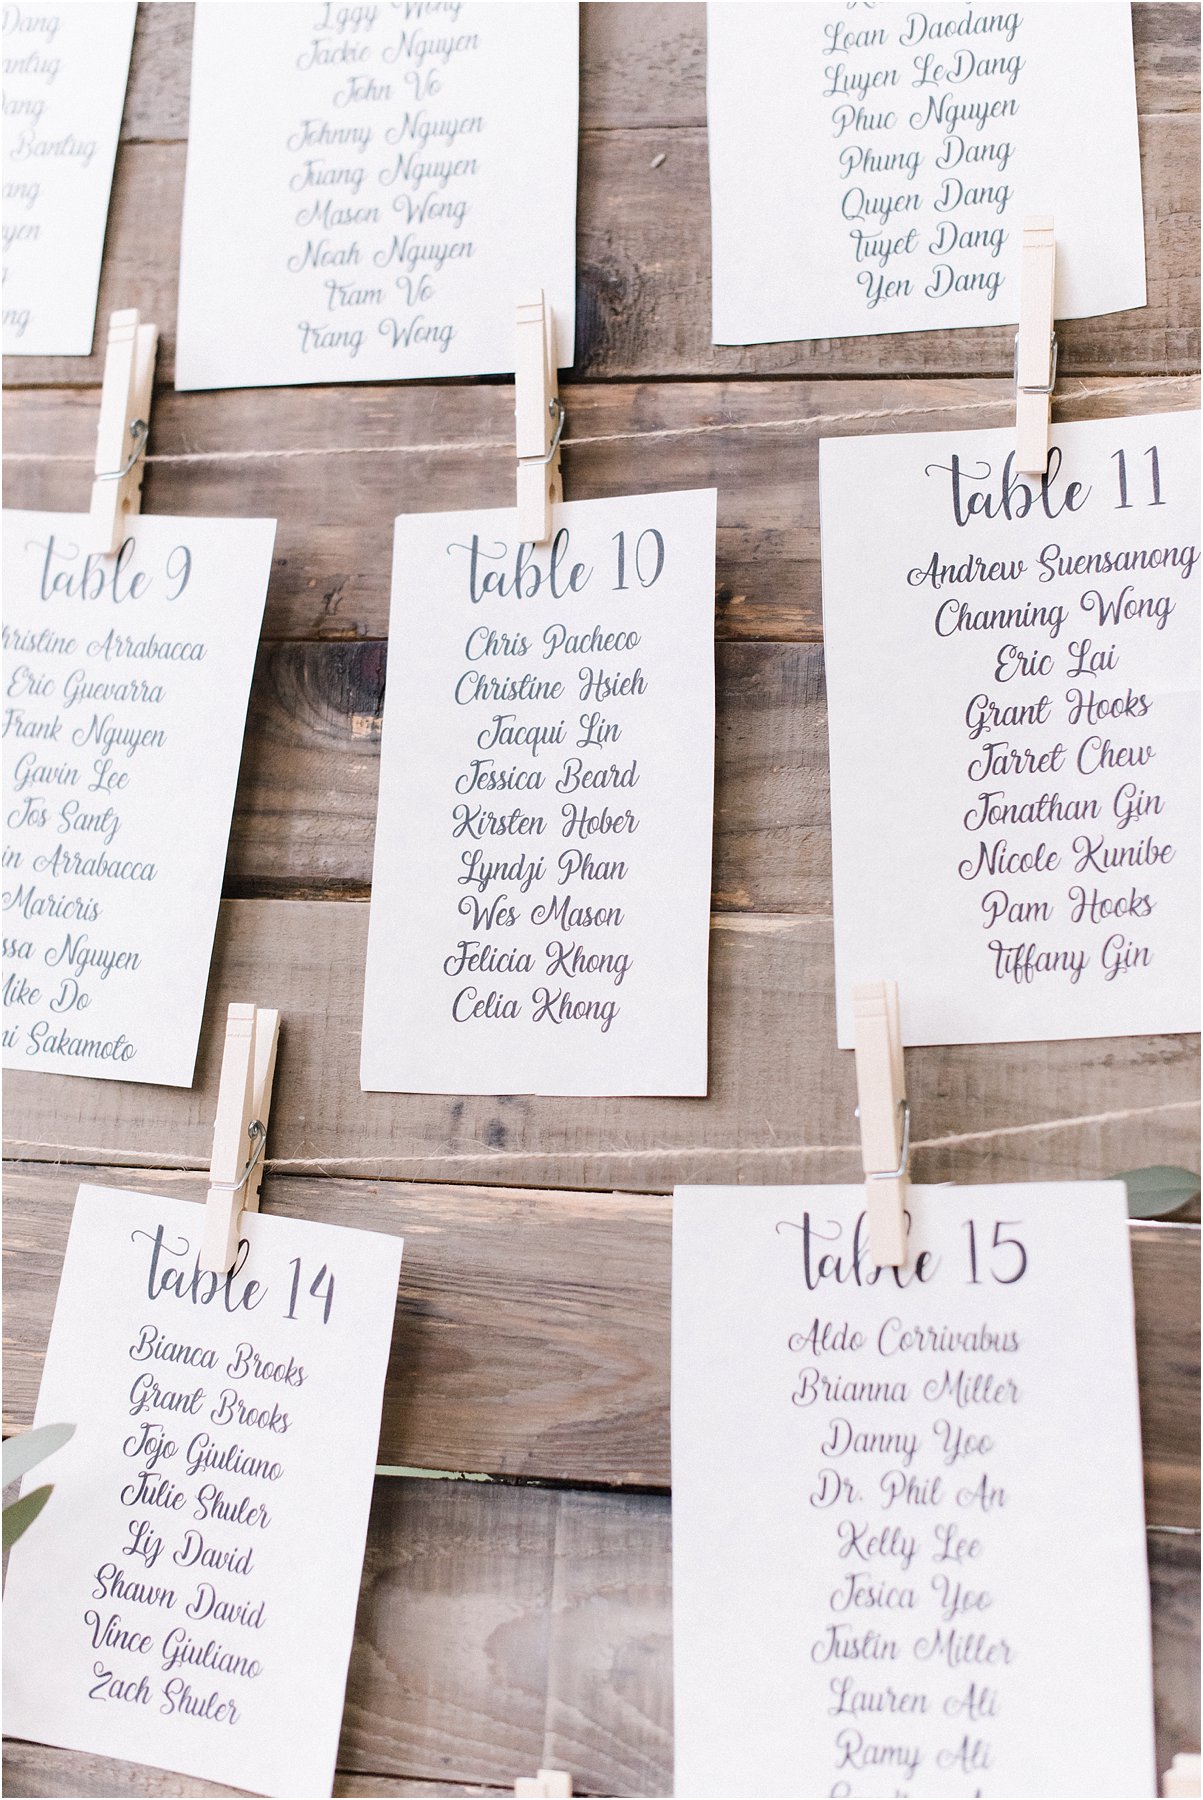 Dang
Bantug
Iggy Wong
Jackie Nguyen
John Vo
Johnny Nguyen
Juang Nguyen
Mason Wong
Noah Nguyen
Tram Vo
Trang Wong
Loan Daodang
Luyen LeDang
Phuc Nguyen
Phung Dang
Quyen Dang
Tuyet Dang
Yen Dang
table 9
Christine Arrabacca
Eric Guevarra
Frank Nguyen
Gavin Lee
Jos Santz
Arrabacca
Maricris
Nguyen
Mike Do
Sakamoto
table 10
Chris Pacheco
Christine Hsieh
Jacqui Lin
Jessica Beard
Kirsten Hober
Lyndzi Phan
Wes Mason
Felicia Khong
Celia Khong
table 11
Andrew Suensanong
Channing Wong
Eric Lai
Grant Hooks
Jarret Chew
Jonathan Gin
Nicole Kunibe
Pam Hooks
Tiffany Gin
table 14
Bianca Brooks
Grant Brooks
Jojo Giuliano
Julie Shuler
Liz David
Shawn David
Vince Giuliano
Zach Shuler
table 15
Aldo Corrivabus
Brianna Miller
Danny Yoo
Dr. Phil An
Kelly Lee
Jesica Yoo
Justin Miller
Lauren Ali
Ramy Ali